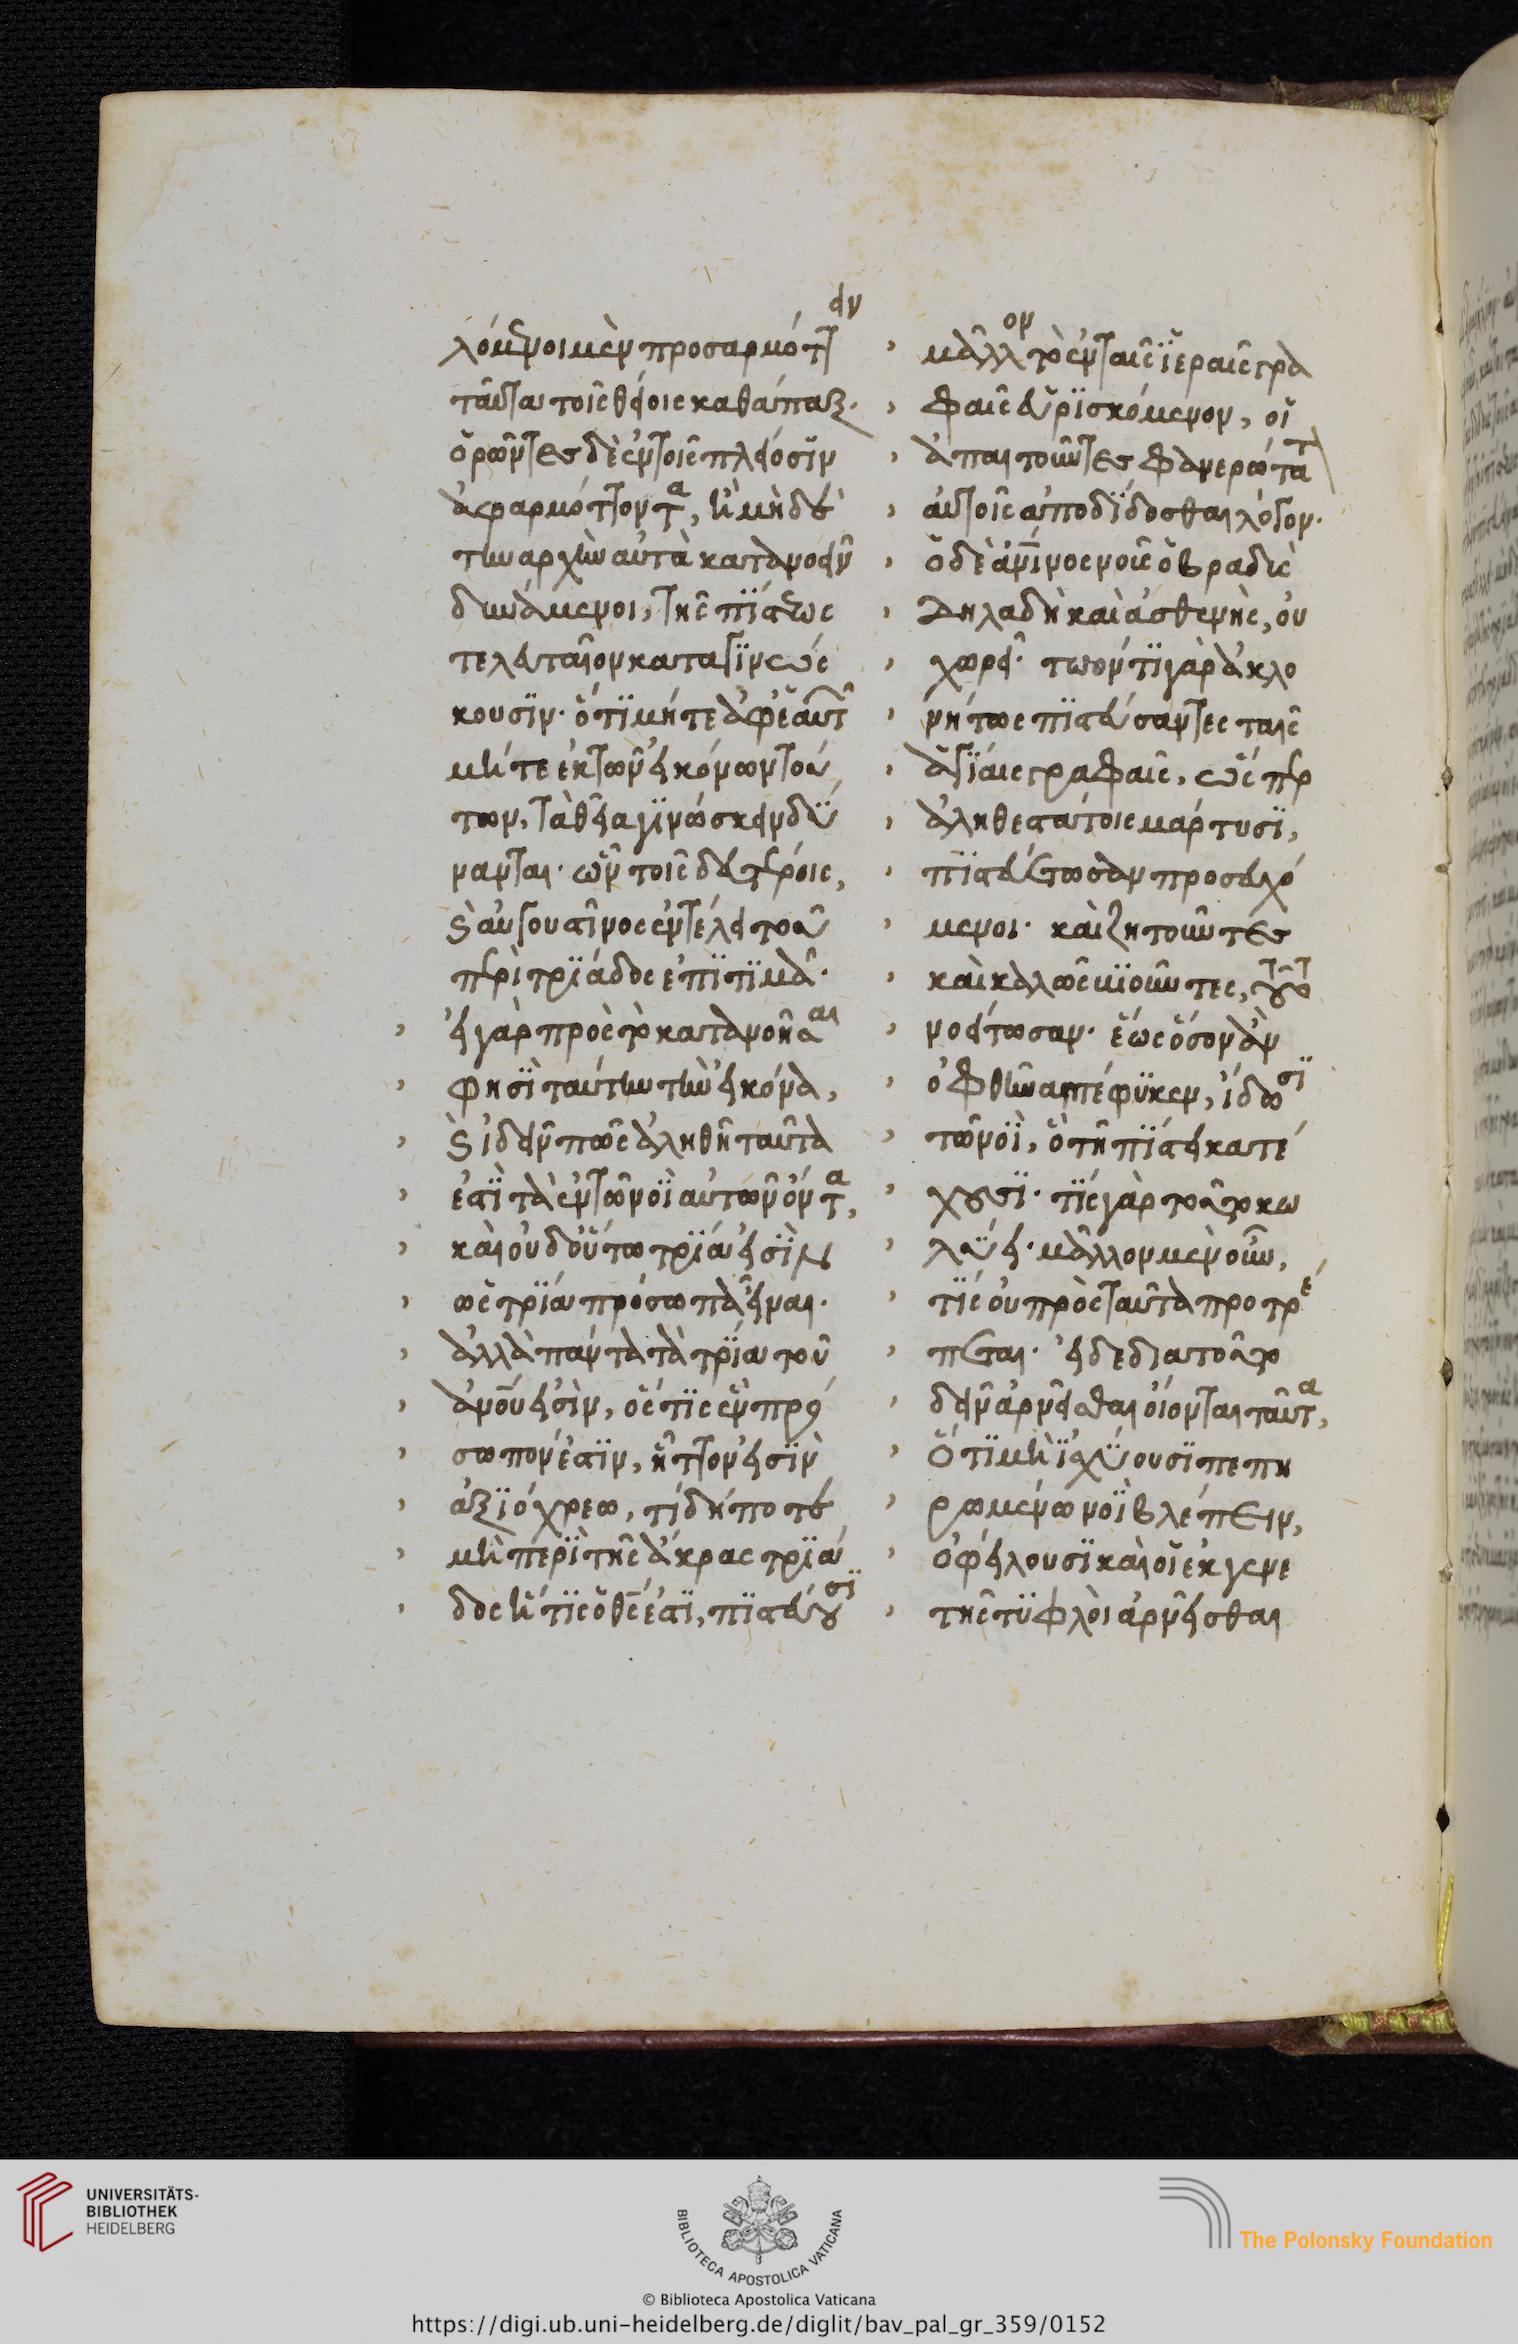 λόμενοι μὲν προσαρμόττειν
ταῦτα τοῖς θείοις καθάπαξ·
ὁρῶντες δὲ ἐν τοῖς πλείοσιν
ἀφαρμόττοντα, ἢ μὴ δὲ
τὴν ἀρχὴν αὐτὰ κατανοεῖν
δυνάμενοι, τῆς πίστεως
τελευταῖον καταγινώς
κουσιν· ὅτι μήτε ἀφ' ἑαυτῶν
μήτε ἐκ τῶν εἰκόνων τού
των, τὰ θεῖα γινώσκειν δύ
νανται· ὧν τοῖς δευτέροις,
καὶ αὐγουστῖνος ἐν τέλει τοῦ
περὶ τριάδος ἐπιτιμᾷ·
εἰ γὰρ πρὸς τὸ κατανοῆσαι
φησὶ ταύτην τὴν εἰκόνα,
καὶ ἰδεῖν πῶς ἀληθῆ ταῦτα
ἐστὶ τὰ ἐν τῷ νοῒ αὐτῶν ὄντα,
καὶ οὐδ' οὕτω τρία εἰσὶν
ὡς τρία πρόσωπα εἶναι·
ἀλλὰ πάντα τὰ τρία τοῦ
ἀνοῦ εἰσὶν, ὅστις ἓν πρό
σωπον ἐστιν, ἧττον εἰσὶν
ἀξιόχρεω, τί δήποτε
μὴ περὶ τῆς ἄκρας τριά
δος ἥτις ὁ θς ἐστὶ, πιστεύουσι
μᾶλλον τὸ ἐν ταῖς ἱεραῖς γρα
φαῖς εὑρισκόμενον, οἱ
ἀπαιτοῦντες φανερώτατ
αὐτοῖς ἀποδίδοσθαι λόγον·
ὃ δὲ ἀνινος νοῦς ὁ βραδὺς
δηλαδὴ καὶ ἀσθενὴς, οὐ
χωρεῖ· τωόντι γὰρ ἀκλο
νήτως πιστεύσαντες ταῖς
ἁγίαις γραφαῖς, ὥσπερ
ἀληθεστάτοις μάρτυσι,
πιστευέτωσαν προσευχό
μενοι· καὶ ζητοῦντες
καὶ καλῶς βιοῦντες, τοῦτο
νοείτωσαν· ἕως ὅσον ἂν
ὀφθῆναι πέφυκεν, ἴδωσι
τῷ νοῒ, ὃ τῇ πίστει κατέ
χουσι· τίς γὰρ τοῦτο κω
λύει· μᾶλλον μὲν οὖν,
τίς οὐ πρὸς ταῦτα προτρέ
πεται· εἰ δὲ διατοῦτο
δεῖν ἀρνεῖσθαι οἴονται ταῦτα,
ὅτι μὴ ἰσχύουσι πεπη
ρωμένῳ νοῒ βλέπειν,
ὀφείλουσι καὶ οἱ ἐκ γενε
τῆς τυφλοὶ ἀρνεῖσθαι
UNIVERSITÄTS-
BIBLIOTHEK
HEIDELBERG
BIBLIOTECA APOSTOLICA VATICANA
The Polonsky Foundation
© Biblioteca Apostolica Vaticana
https://digi.ub.uni-heidelberg.de/diglit/bav_pal_gr_359/0152